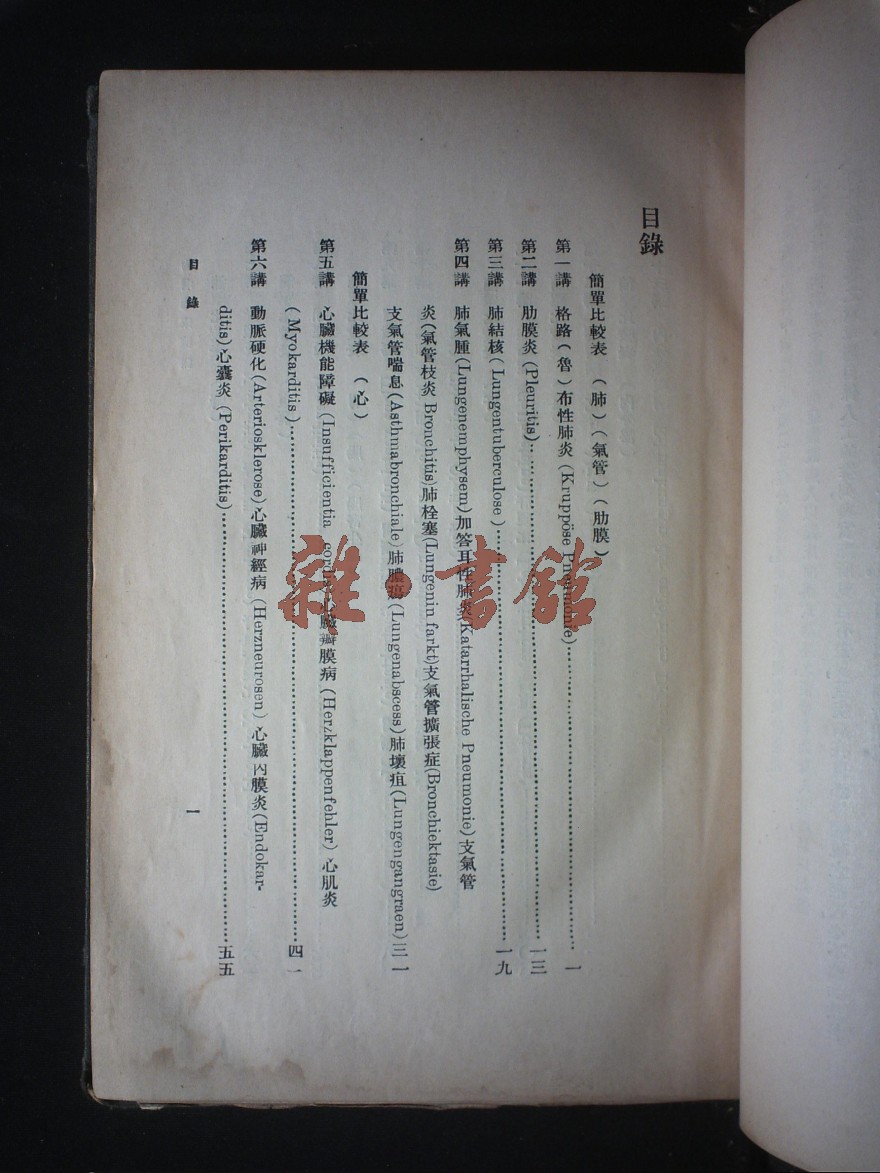 目錄
簡單比較表 （肺）（氣管）（肋膜）
第一講 格路（魯）布性肺炎（Kruppöse Pneumonie）……一
第二講 肋膜炎（Pleuritis）……一三
第三講 肺結核（Lungentuberculose）……一九
第四講 肺氣腫(Lungenemphysem)加答耳性肺炎(Katarrhalische Pneumonie)支氣管
炎(氣管枝炎 Bronchitis)肺栓塞(Lungenin farkt)支氣管擴張症(Bronchiektasie)
支氣管喘息(Asthmabronchiale)肺膿瘍(Lungenabscess)肺壞疽(Lungengangraen)三一
簡單比較表 （心）
第五講 心臟機能障礙（Insufficientia cordis）心臟瓣膜病（Herzklappenfehler）心肌炎
（Myokarditis）……四一
第六講 動脈硬化(Arteriosklerose)心臟神經病（Herzneurosen）心臟內膜炎(Endokar-
ditis)心囊炎（Perikarditis）……五五
目錄 一
雜·書館